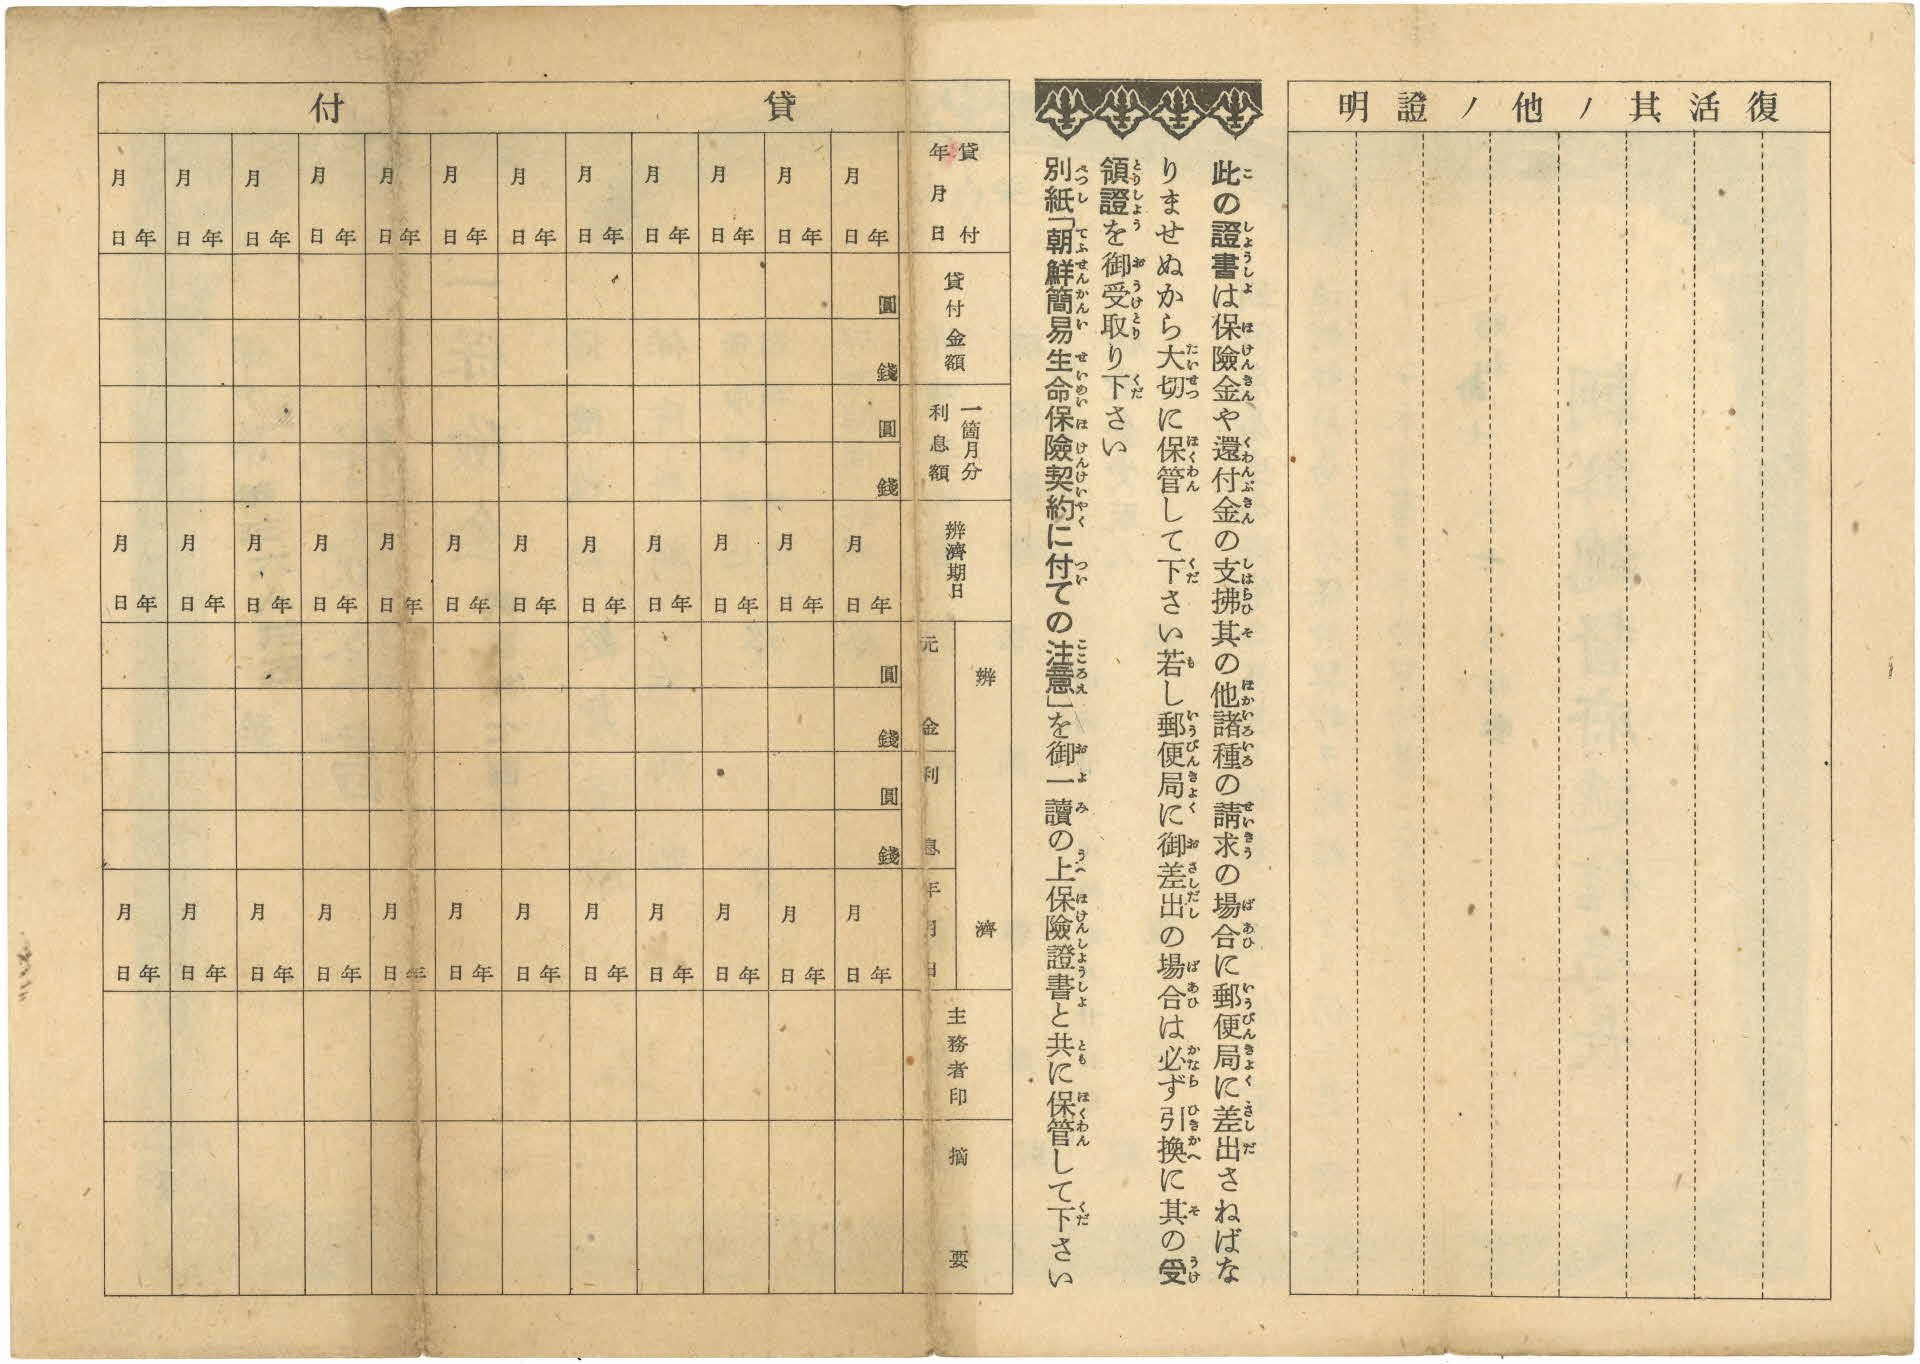 復活其ノ他ノ證明
此の證書は保險金や還付金の支拂其の他諸種の請求の場合に郵便局に差出さねばな
りませぬから大切に保管して下さい若し郵便局に御差出の場合は必ず引換に其の受
領證を御受取り下さい
別紙「朝鮮簡易生命保險契約に付ての注意」を御一讀の上保險證書と共に保管して下さい
貸付
貸付年月日
年月日 年月日 年月日 年月日 年月日 年月日 年月日 年月日 年月日 年月日 年月日 年月日
貸付金額
圓
錢
一箇月分利息額
圓
錢
辨濟期日
年月日 年月日 年月日 年月日 年月日 年月日 年月日 年月日 年月日 年月日 年月日 年月日
辨濟
元金
圓
錢
利息
圓
錢
年月日
年月日 年月日 年月日 年月日 年月日 年月日 年月日 年月日 年月日 年月日 年月日 年月日
主務者印
摘要